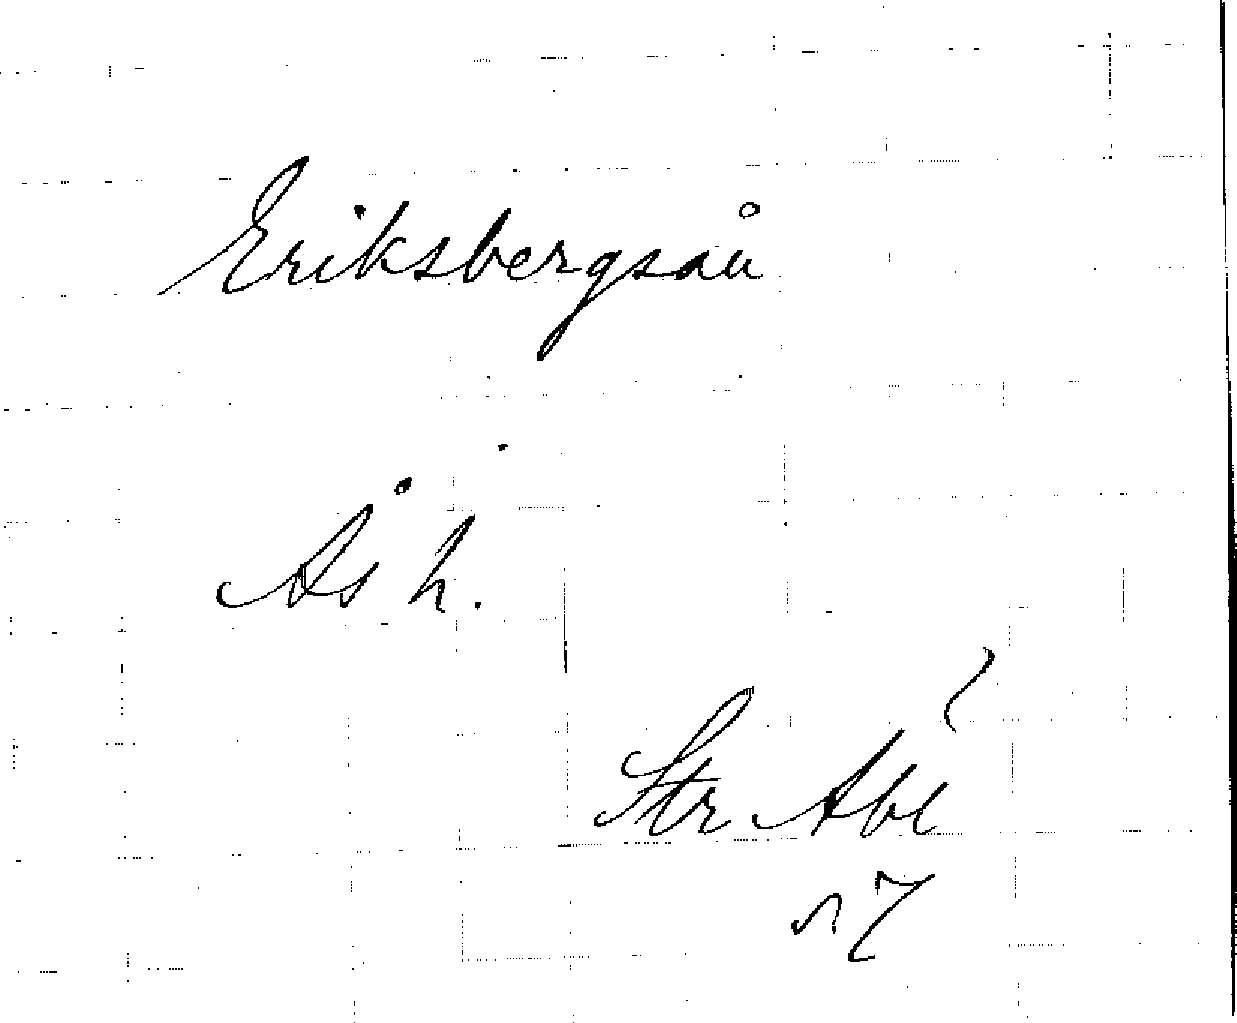 Eriksbergsån
Ås h.
Str Abl